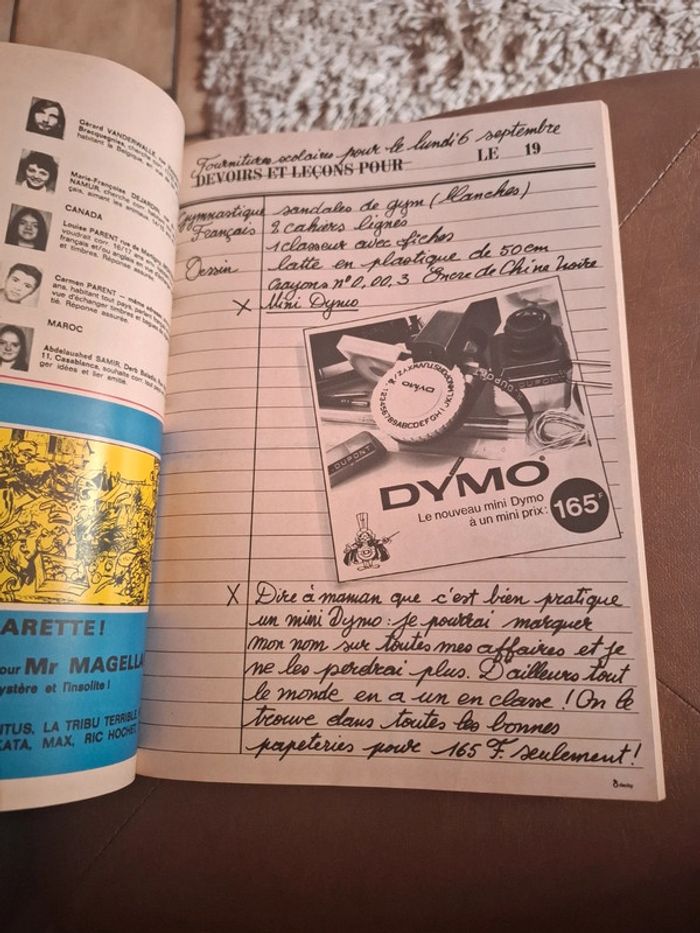 Gérard VANDERWALLE, rue
Bracquegnies, cherche corr.
habitant la Belgique, en vue
Marie-Françoise DEJARDIN,
NAMUR, cherche corr.
çais, aimant les animaux. 14/15
CANADA
Louise PARENT rue de Martigny,
voudrait corr. 16/17 ans
français et/ou anglais en vue
et timbres. Réponse assurée.
Carmen PARENT - même adresse,
ans, habitant tout pays, parlant
vue d'échanger timbres et
tié. Réponse assurée.
MAROC
Abdelaushed SAMIR, Derb
11, Casablanca, souhaite corr. tout
ger idées et lier amitié.
ARETTE !
our Mr MAGELLA
ystère et l'insolite !
ITUS, LA TRIBU TERRIBLE
KATA, MAX, RIC HOCHET,
Fournitures scolaires pour le lundi 6 septembre
DEVOIRS ET LEÇONS POUR LE 19
Gymnastique sandales de gym (blanches)
Français 2 cahiers lignés
1 classeur avec fiches
Dessin latte en plastique de 50 cm
crayons n° 0, 00, 3 Encre de Chine Noire
X Mini Dymo
DYMO
DUPONT
DUPONT
DYMO
Le nouveau mini Dymo
à un mini prix: 165F
X Dire à maman que c'est bien pratique
un mini Dymo : je pourrai marquer
mon nom sur toutes mes affaires et je
ne les perdrai plus. D'ailleurs tout
le monde en a un en classe ! On le
trouve dans toutes les bonnes
papeteries pour 165 F. seulement !